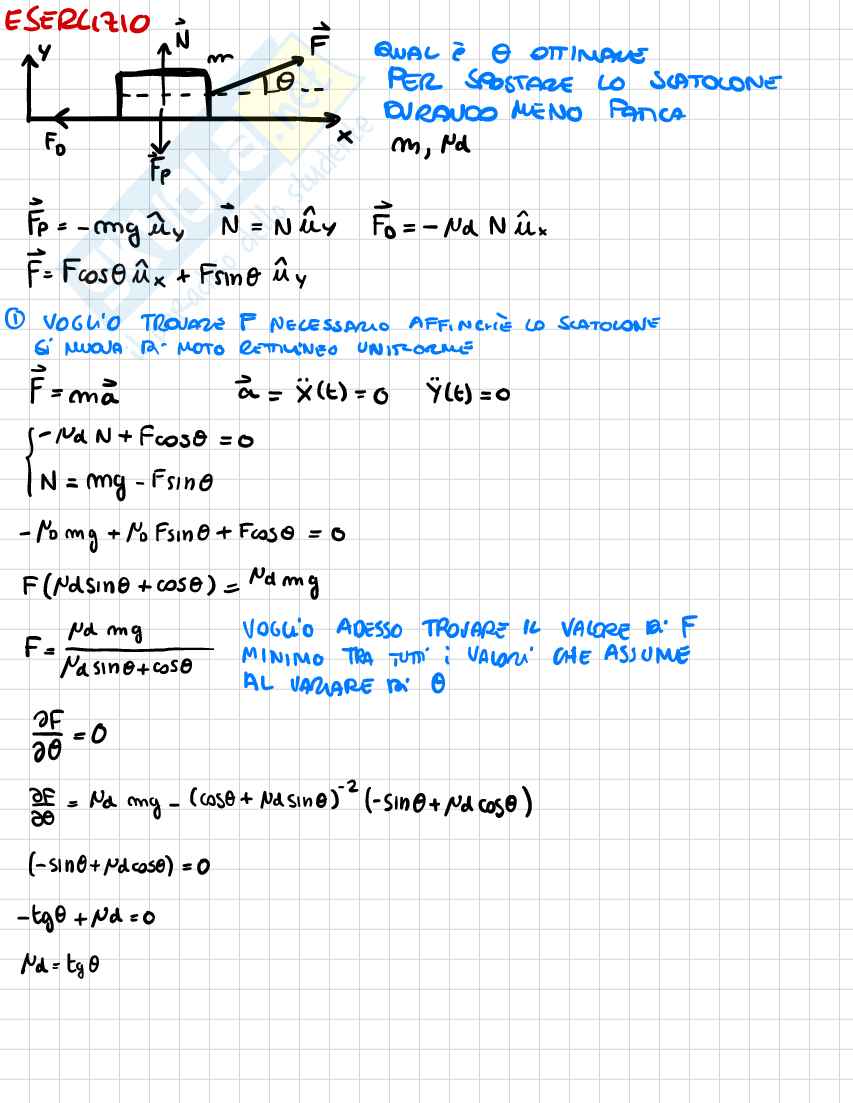 ESERCIZIO
y N m F θ
F_D F_P x
QUAL È θ OTTIMALE
PER SPOSTARE LO SCATOLONE
DURANDO MENO FATICA
m, μd
F_P = -mg û_y N = N û_y F_D = -μd N û_x
F = Fcosθ û_x + Fsinθ û_y
① VOGLIO TROVARE F NECESSARIO AFFINCHÈ LO SCATOLONE
SI MUOVA DI MOTO RETTILINEO UNIFORME
F = ma a = ẍ(t) = 0 ÿ(t) = 0
{ -μd N + Fcosθ = 0
N = mg - Fsinθ
-μ_D mg + μ_D Fsinθ + Fcosθ = 0
F(μd sinθ + cosθ) = μd mg
F = μd mg / (μd sinθ + cosθ)
VOGLIO ADESSO TROVARE IL VALORE DI F
MINIMO TRA TUTTI I VALORI CHE ASSUME
AL VARIARE DI θ
∂F/∂θ = 0
∂F/∂θ = μd mg - (cosθ + μd sinθ)^-2 (-sinθ + μd cosθ)
(-sinθ + μd cosθ) = 0
-tgθ + μd = 0
μd = tgθ